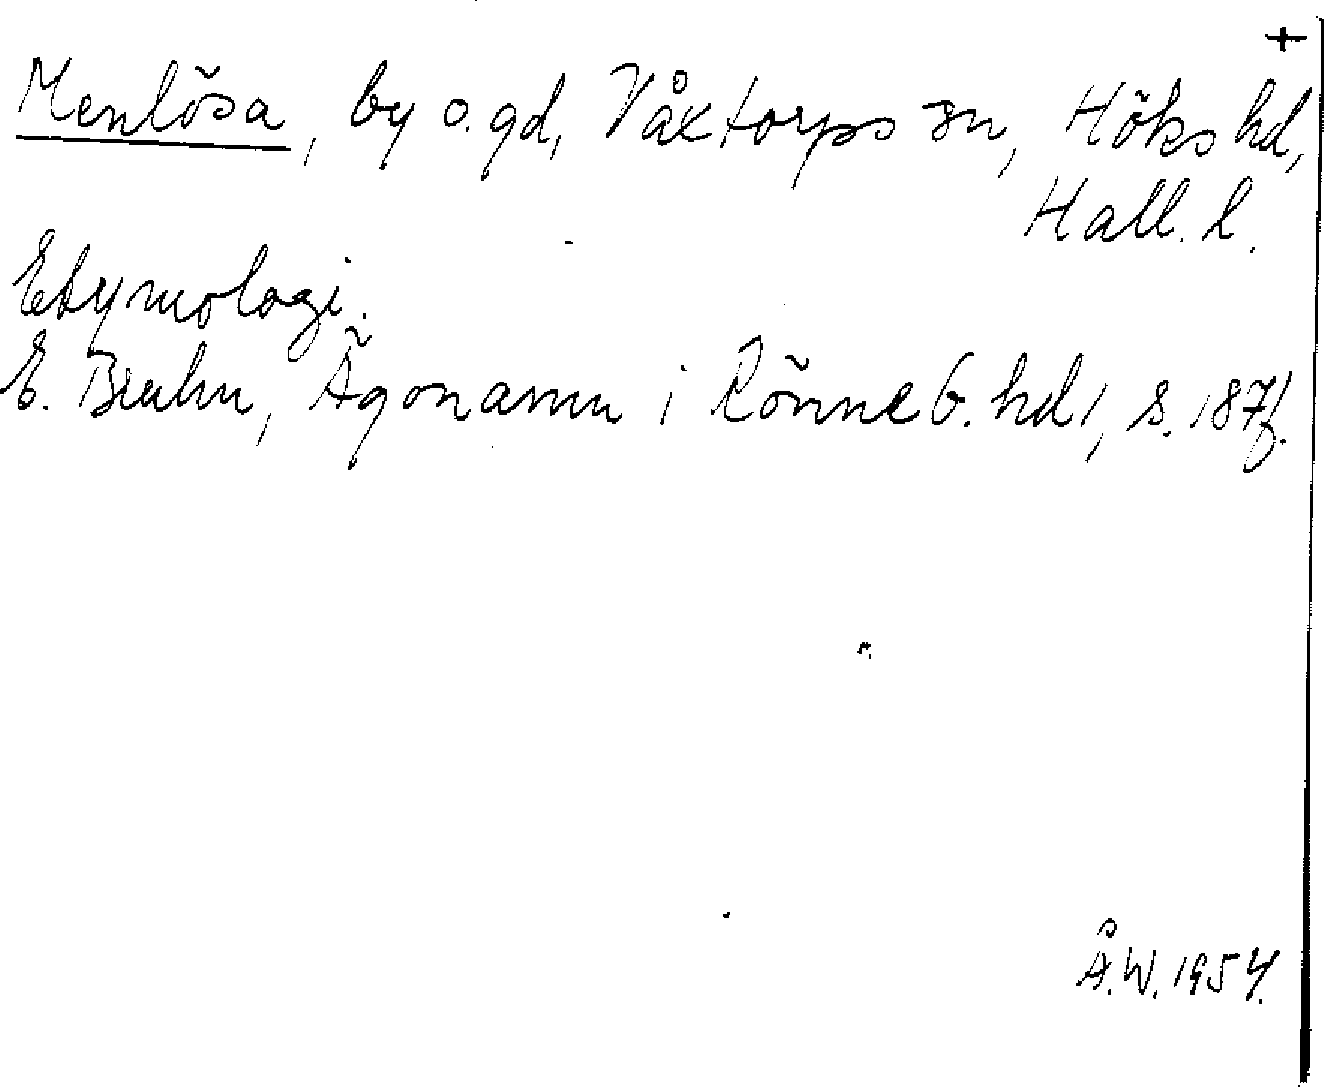 +
Menlösa, by o. gd, Våxtorps sn, Höks hd,
Hall. l.
Etymologi.
E. Bruhn, Ägonamn i Rönneb. hd 1, s. 187f.
Å.W. 1954.